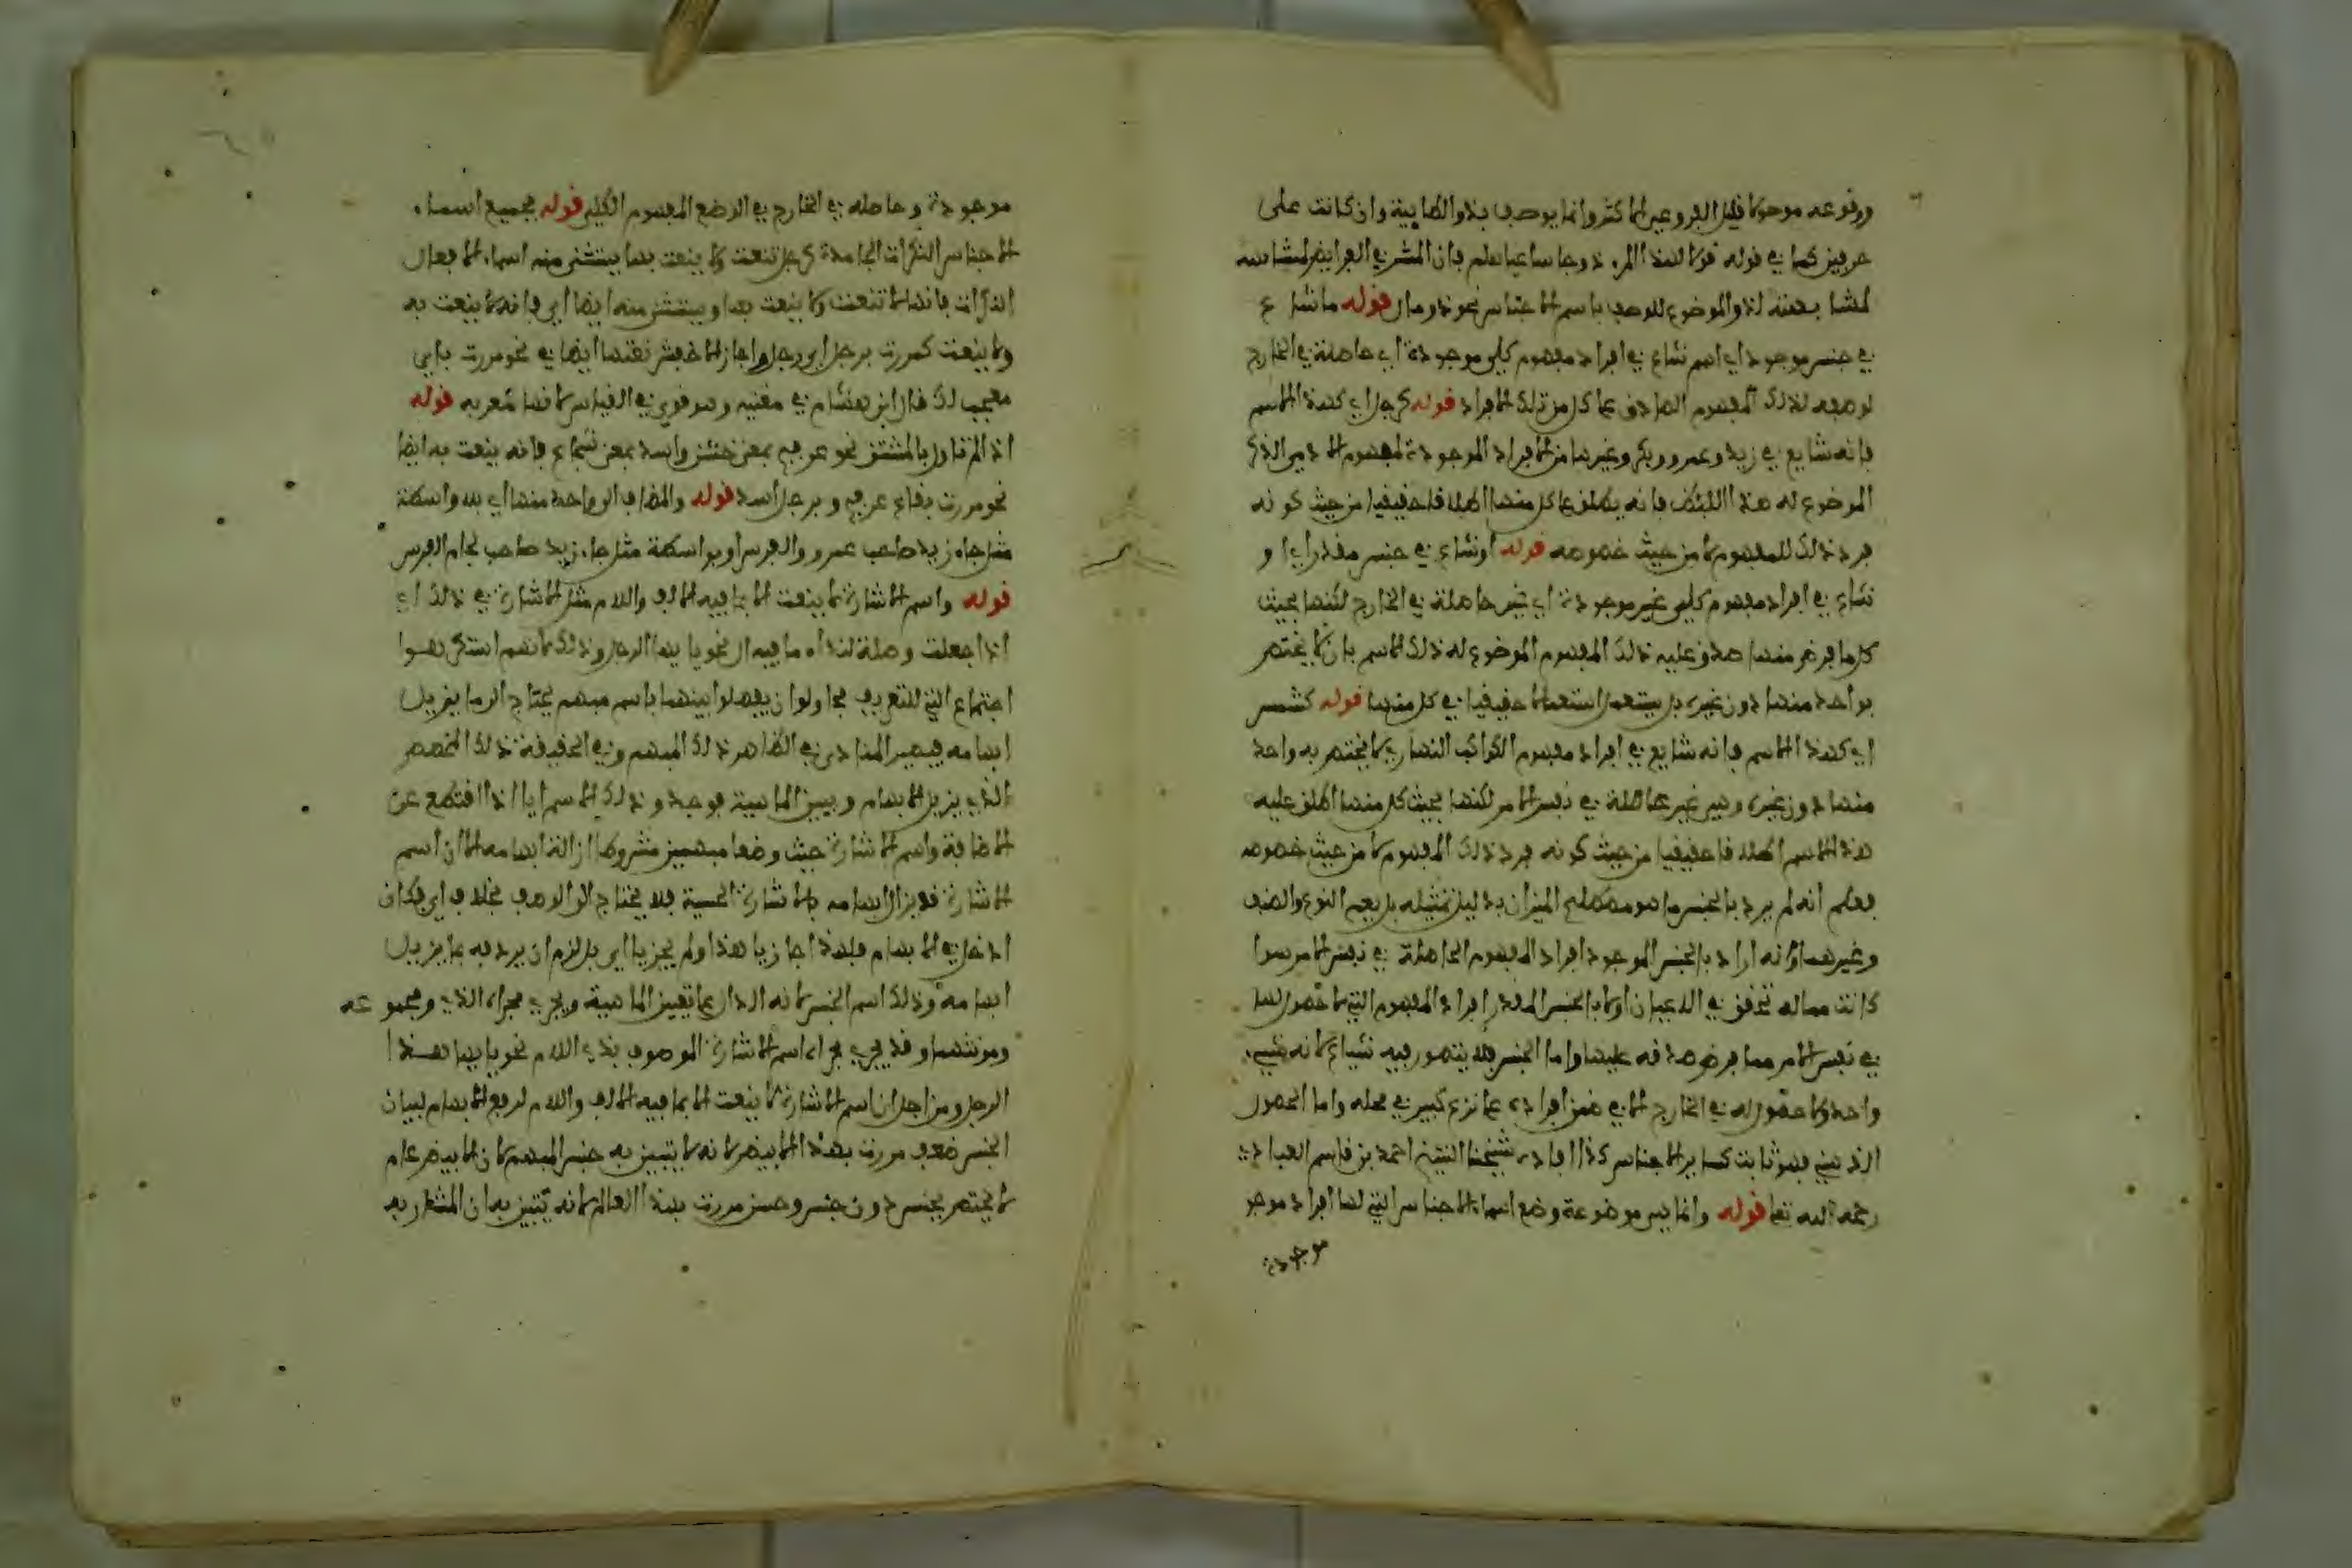 ووقوعه موصولا قليل الفروعين الاكثر وانما يوصف بذو الطايية وان كانت على
حرفين كما في قوله قولا لهذا المرء ذو جا ساعيا هلم فان المشرفي الفرايض لمشابهته
لمشابهته لذو الموضوع للوصف باسم الاجناس نحو ذو مال قوله ما شاع
في جنس موجود اي اسم شاع في افراد مفهوم كلي موجودة اي حاصلة في الخارج
لوضعه لذلك المفهوم الصادق على كل من تلك الافراد قوله كرجل اي كهذا الاسم
فانه شايع في زيد وعمرو وبكر وغيرها من الافراد الموجودة لمفهوم الادمي الذكر
الموضوع له هذا اللفظ فانه يطلق على كل منها اطلاقا حقيقيا من حيث كونه
فرد ذلك المفهوم لا من حيث خصوصه قوله او شاع في جنس مقدر اي او
شاع في افراد مفهوم كلي غير موجودة اي غير حاصلة في الخارج لكنها بحيث
كل ما فرض منها صدق عليه ذلك المفهوم الموضوع له ذلك الاسم بان لا يختص
بواحد منها دون غيره بل يستعمل استعمالا حقيقيا في كل منها قوله كشمس
اي كهذا الاسم فانه شايع في افراد مفهوم الكوكب النهاري لا يختص به واحد
منها دون غيره وهي غير حاصلة في نفس الامر لكنها بحيث كل منها اطلق عليه
هذا الاسم اطلاقا حقيقيا من حيث كونه فرد ذلك المفهوم لا من حيث خصوصه
فعلم انه لم يرد بالجنس ما هو مصطلح الميزان بدليل تمثيله بل يعم النوع والصنف
وغيرهما وانه اراد بالجنس الموجود افراد المفهوم الحاصلة في نفس الامر سوا
كانت مما له تحقق في الاعيان او لا وبالجنس المقدر افراد المفهوم التي لا حصول لها
في نفس الامر مما فرض صدقه عليها واما الجنس فلا يتصور فيه شياع لانه شيء
واحد ولا حصول له في الخارج الا في ضمن افراده على نزع كبير في محله واما الحصول
الذهني فهو ثابت كساير الاجناس كذا افاده شيخنا الشيخ احمد بن قاسم العبادي
رحمه الله تعا قوله وانما هي موضوعة وضع اسماء الاجناس التي لها افراد موجو
موجودة
موجودة وحاصله في الخارج في الوضع المفهوم الكلي قوله بجميع اسماء
الاجناس النكرات الجامدة كرجل تنعت ولا ينعت بها يستثنى منه اسماء الافعال
النكرات فانها لا تنعت ولا ينعت بها ويستثنى منه ايضا اي فانه لا ينعت به
ولا ينعت كمررت برجل اي رجل واجاز الاخفش نعتها ايضا في نحو مررت باي
معجب لك قال ابن هشام في مغنيه وهو قوي في القياس لانها معربة قوله
اذا لم تاول بالمشتق نحو عرفج بمعنى خشن واسد بمعنى شجاع فانه ينعت به ايضا
نحو مررت بقاع عرفج وبرجل اسد قوله والمضاف الى واحد منها اي بلا واسطة
مثل جاء زيد صاحب عمرو والفرس او بواسطة مثل جاء زيد صاحب لجام الفرس
قوله واسم الاشارة لا ينعت الا بما فيه الالف واللام مثل الاشارة في ذلك اي
اذا جعلت وصلة لنداء ما فيه ال نحو يا ايها الرجل وذلك لانهم استكرهوا
اجتماع التي للتعريف فحاولوا ان يفصلوا بينهما باسم مبهم يحتاج الى ما يزيل
ابهامه فيصير المنادى في الظاهر ذلك المبهم وفي الحقيقة ذلك المخصص
الذي يزيل الابهام ويبين الماهية فوجدوا ذلك الاسم ايا اذا قطع عن
الاضافة واسم الاشارة حيث وضعا مبهمين مشروطا ازالة ابهامه الا ان اسم
الاشارة قد يزال ابهامه بالاشارة الحسية فلا يحتاج الى الوصف بخلاف اي فكان
ادخل في الابهام فلهذا جاز يا هذا ولم يجز يا اي بل لزم ان يردفه بما يزيل
ابهامه وذلك اسم الجنس لانه الدال على تعيين الماهية ويجري مجراه الذي ومجموعه
ومونثها وقد يجري مجراه اسم الاشارة الموصوف بذي اللام نحو يا ايها هذا
الرجل ومن اجل ان اسم الاشارة لا ينعت الا بما فيه الالف واللام لرفع الابهام لبيان
الجنس ضعف مررت بهذا الابيض لانه لا يتبين به جنس المبهم لان الابيض عام
لا يختص بجنس دون جنس وحسن مررت بهذا العالم لانه يتبين به ان المشار به